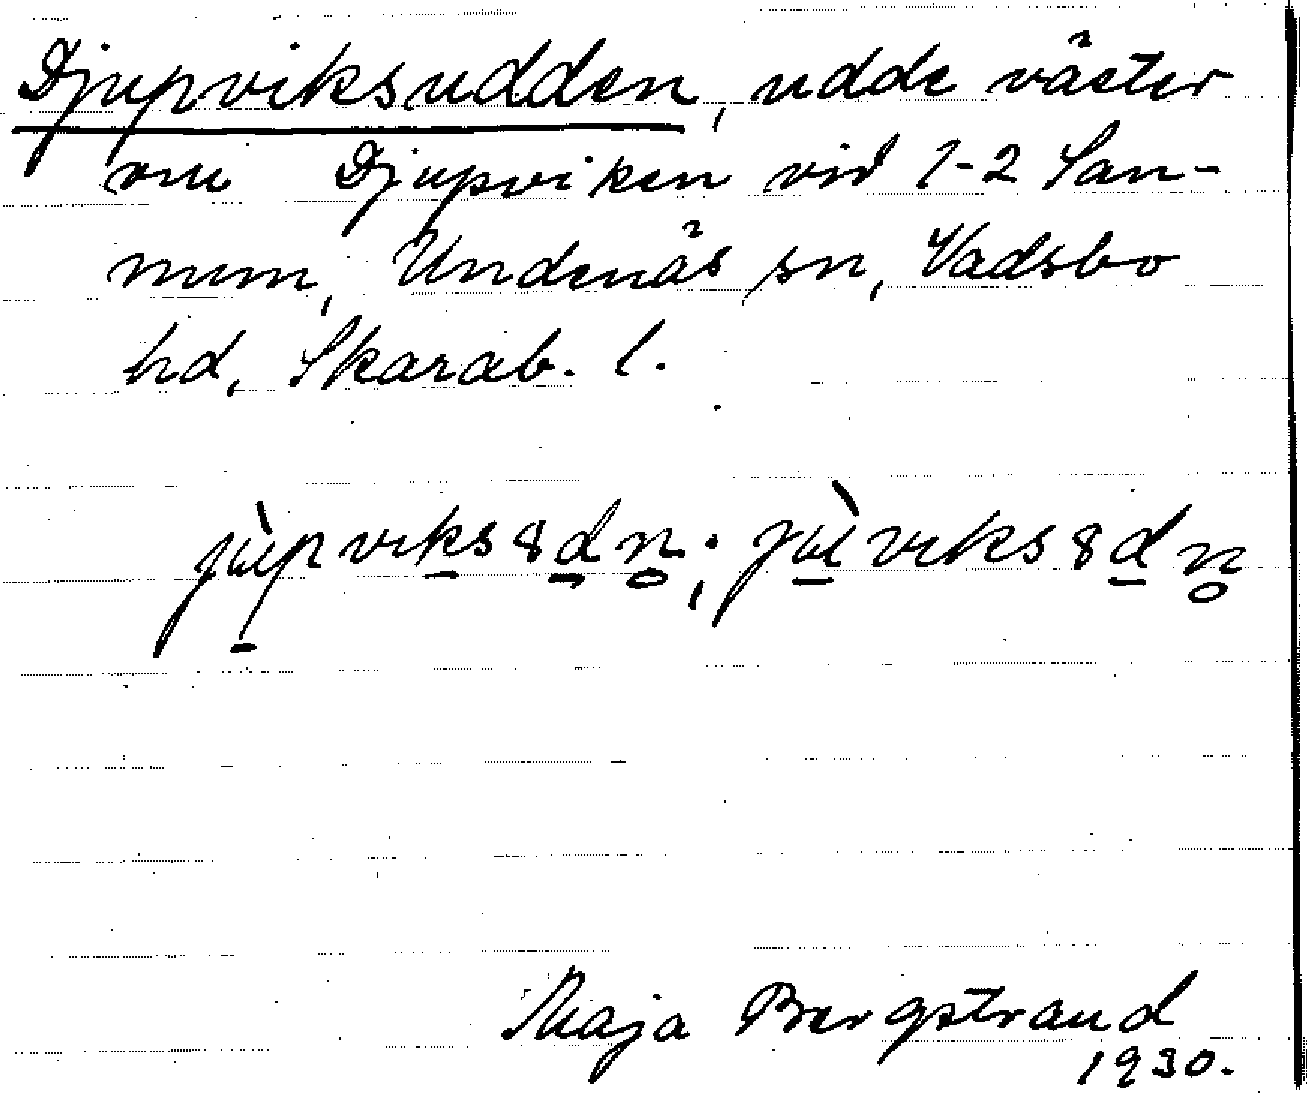 Djupviksudden, udde väster
om Djupviken vid 1-2 San-
num, Undenäs sn, Vadsbo
hd, Skarab. l.
jùpviks8dn̥; jùviks8dn̥
Maja Bergstrand
1930.